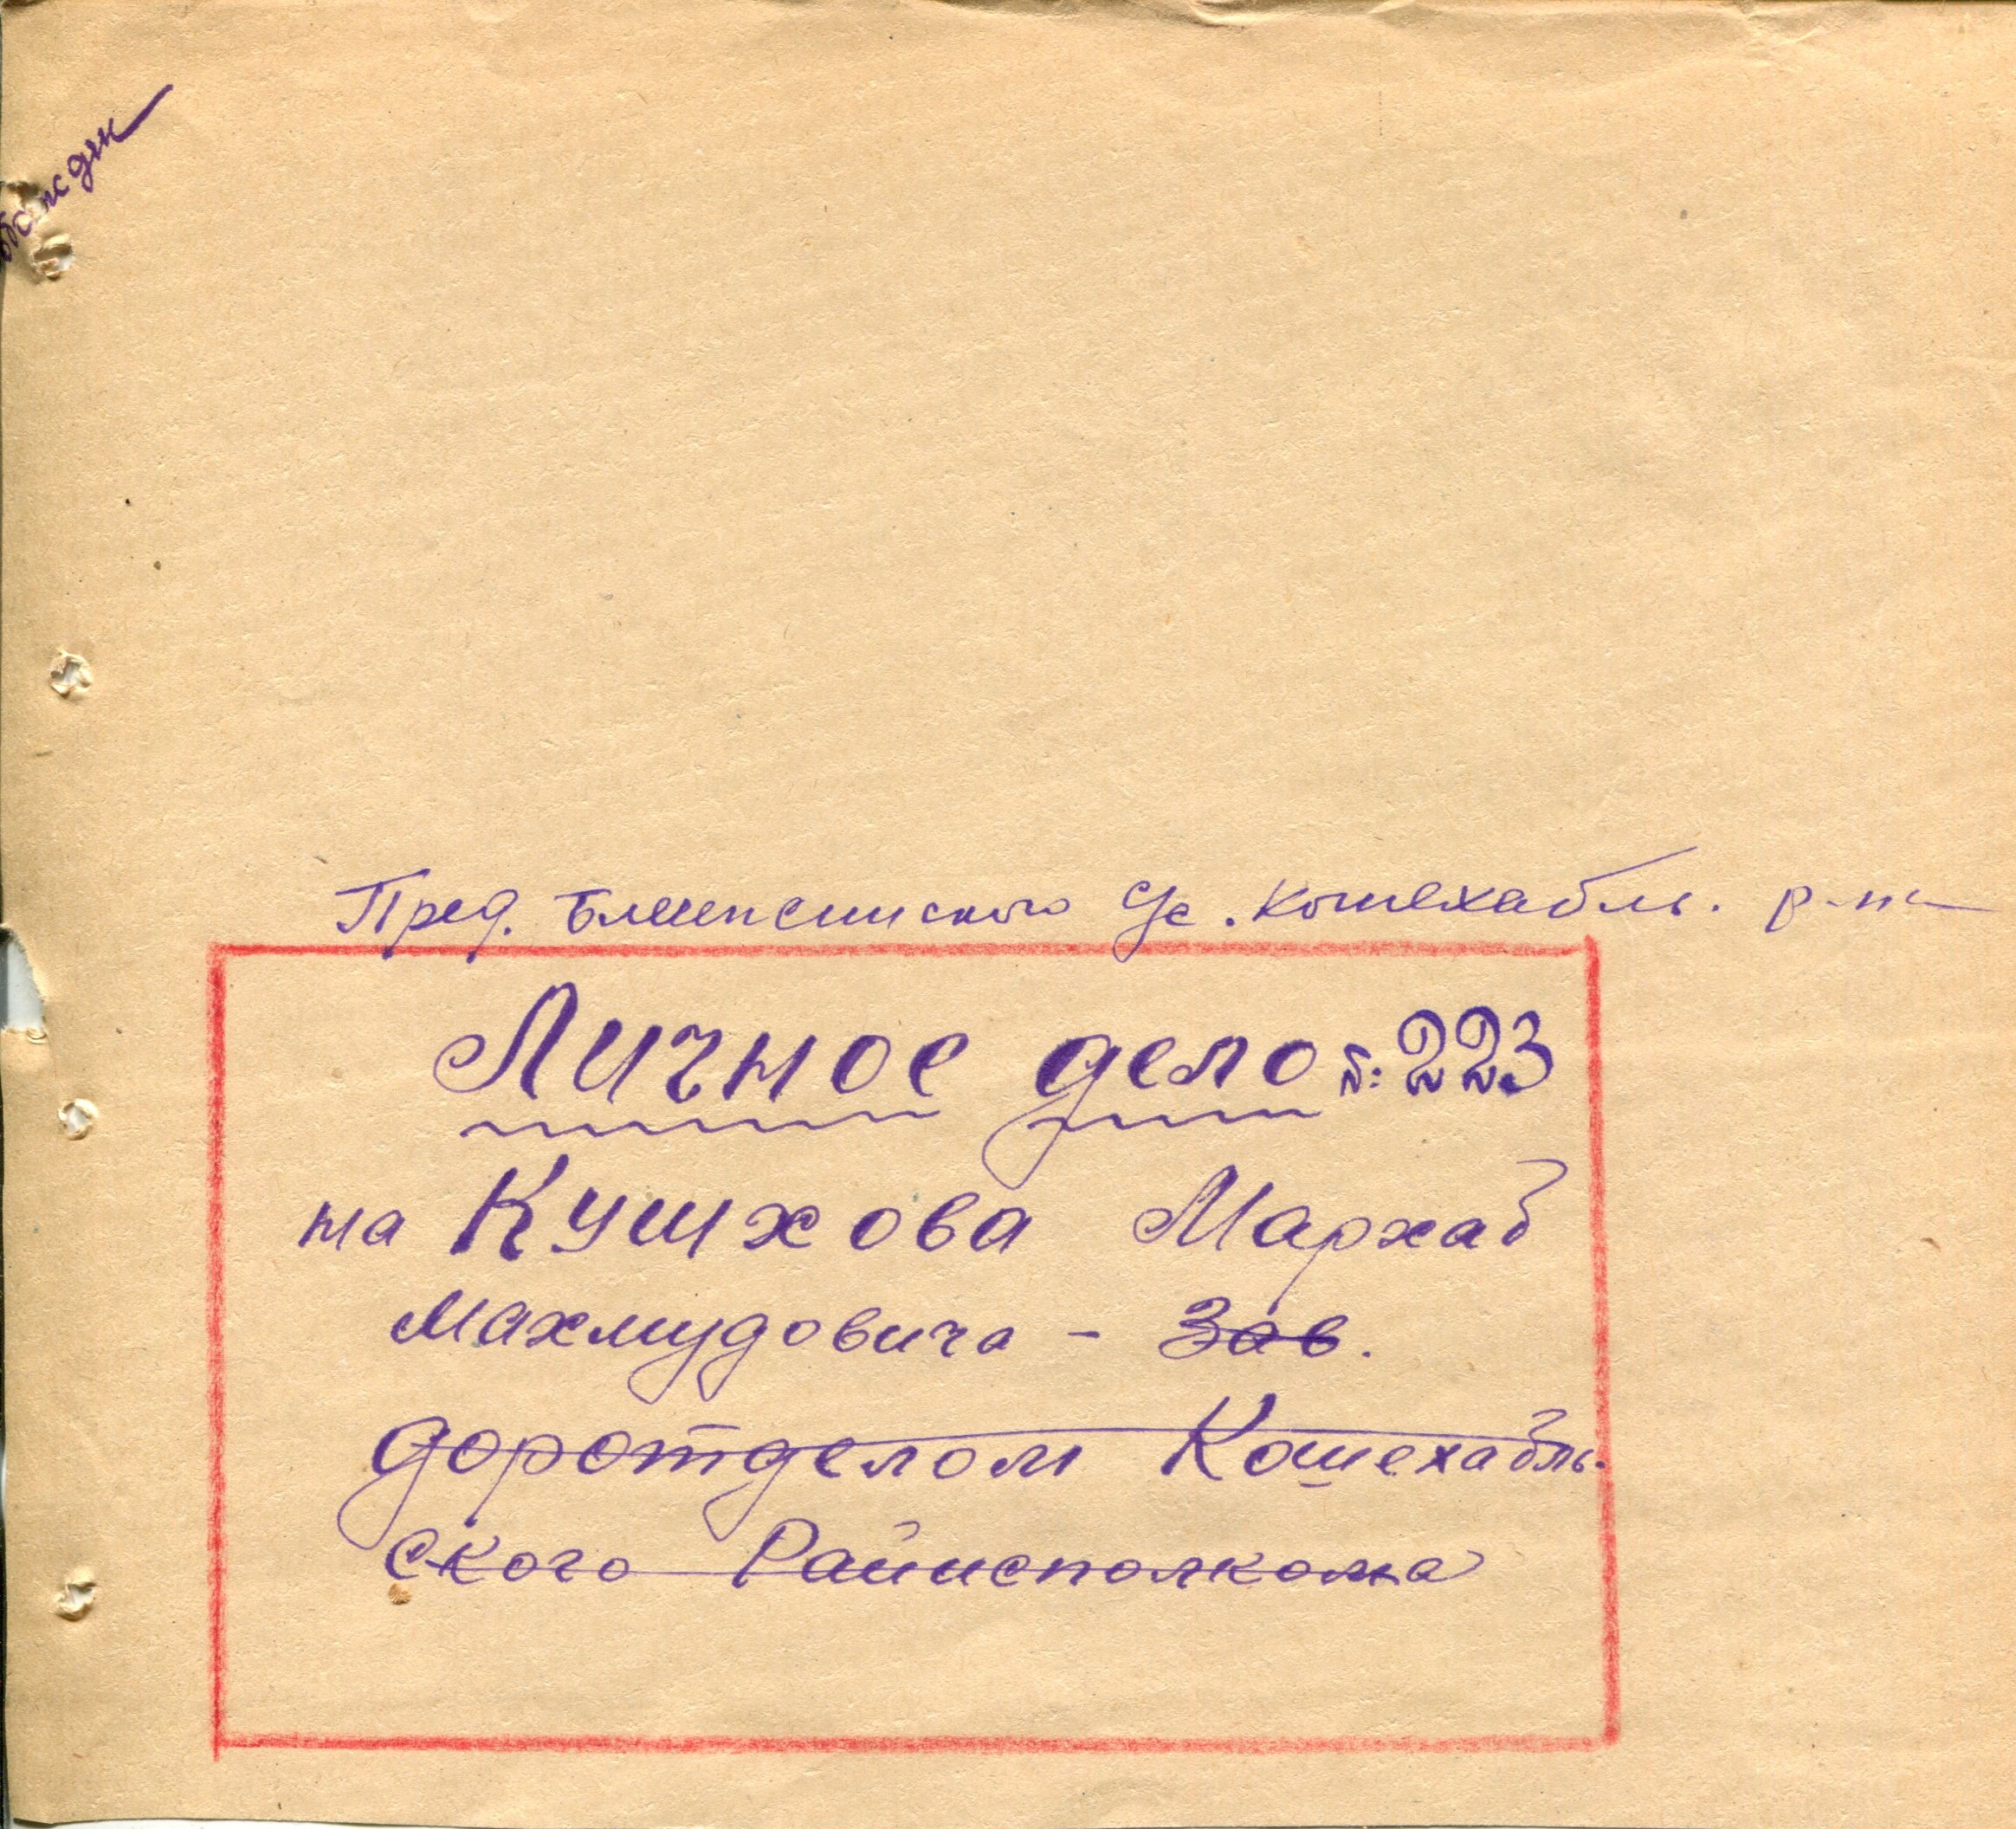 Пред. Блечепсинского С/с. Кошехабль. р-на
Личное дело №: 223
на Кушхова Мархаб
Махмудовича - Зав.
доротделом Кошехабль-
ского Райисполкома